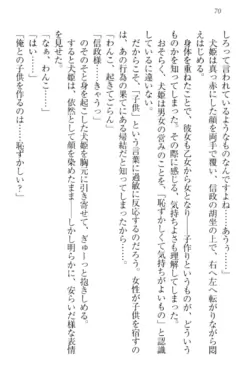 70
しろって言われているようなものなんですよね……あうう……」
犬姫は真っ赤にした顔を両手で覆い、信政の胡坐の上で、右へ左へ転がりながら悶
えはじめる。
身体を重ねたことで、彼女も乙女から女となり――子作りというものが、どういう
ものかを知ってしまった。その際に感じる、気持ちよさも理解してしまった。
おそらく、犬姫は男女の営みのことを、「恥ずかしくて気持ちがよいもの」と認識
しているに違いない。
だからこそ、「子供」という言葉に過敏に反応するのだろう。女性が子供を宿すの
が、あの行為の果てにある帰結だと知ってしまったから……。
「わんこ、起きてごらん」
「信政様……きゃうっ」
のそのそと身を起こした犬姫を胸元に引き寄せて、ぎゅーっと抱きしめる。
犬姫は、依然として顔を染めたまま――しかし明らかに、安らいだ様な表情
を見せた。
「なぁ、わんこ……」
「はい……」
「俺との子供を作るのは……恥ずかしい？」